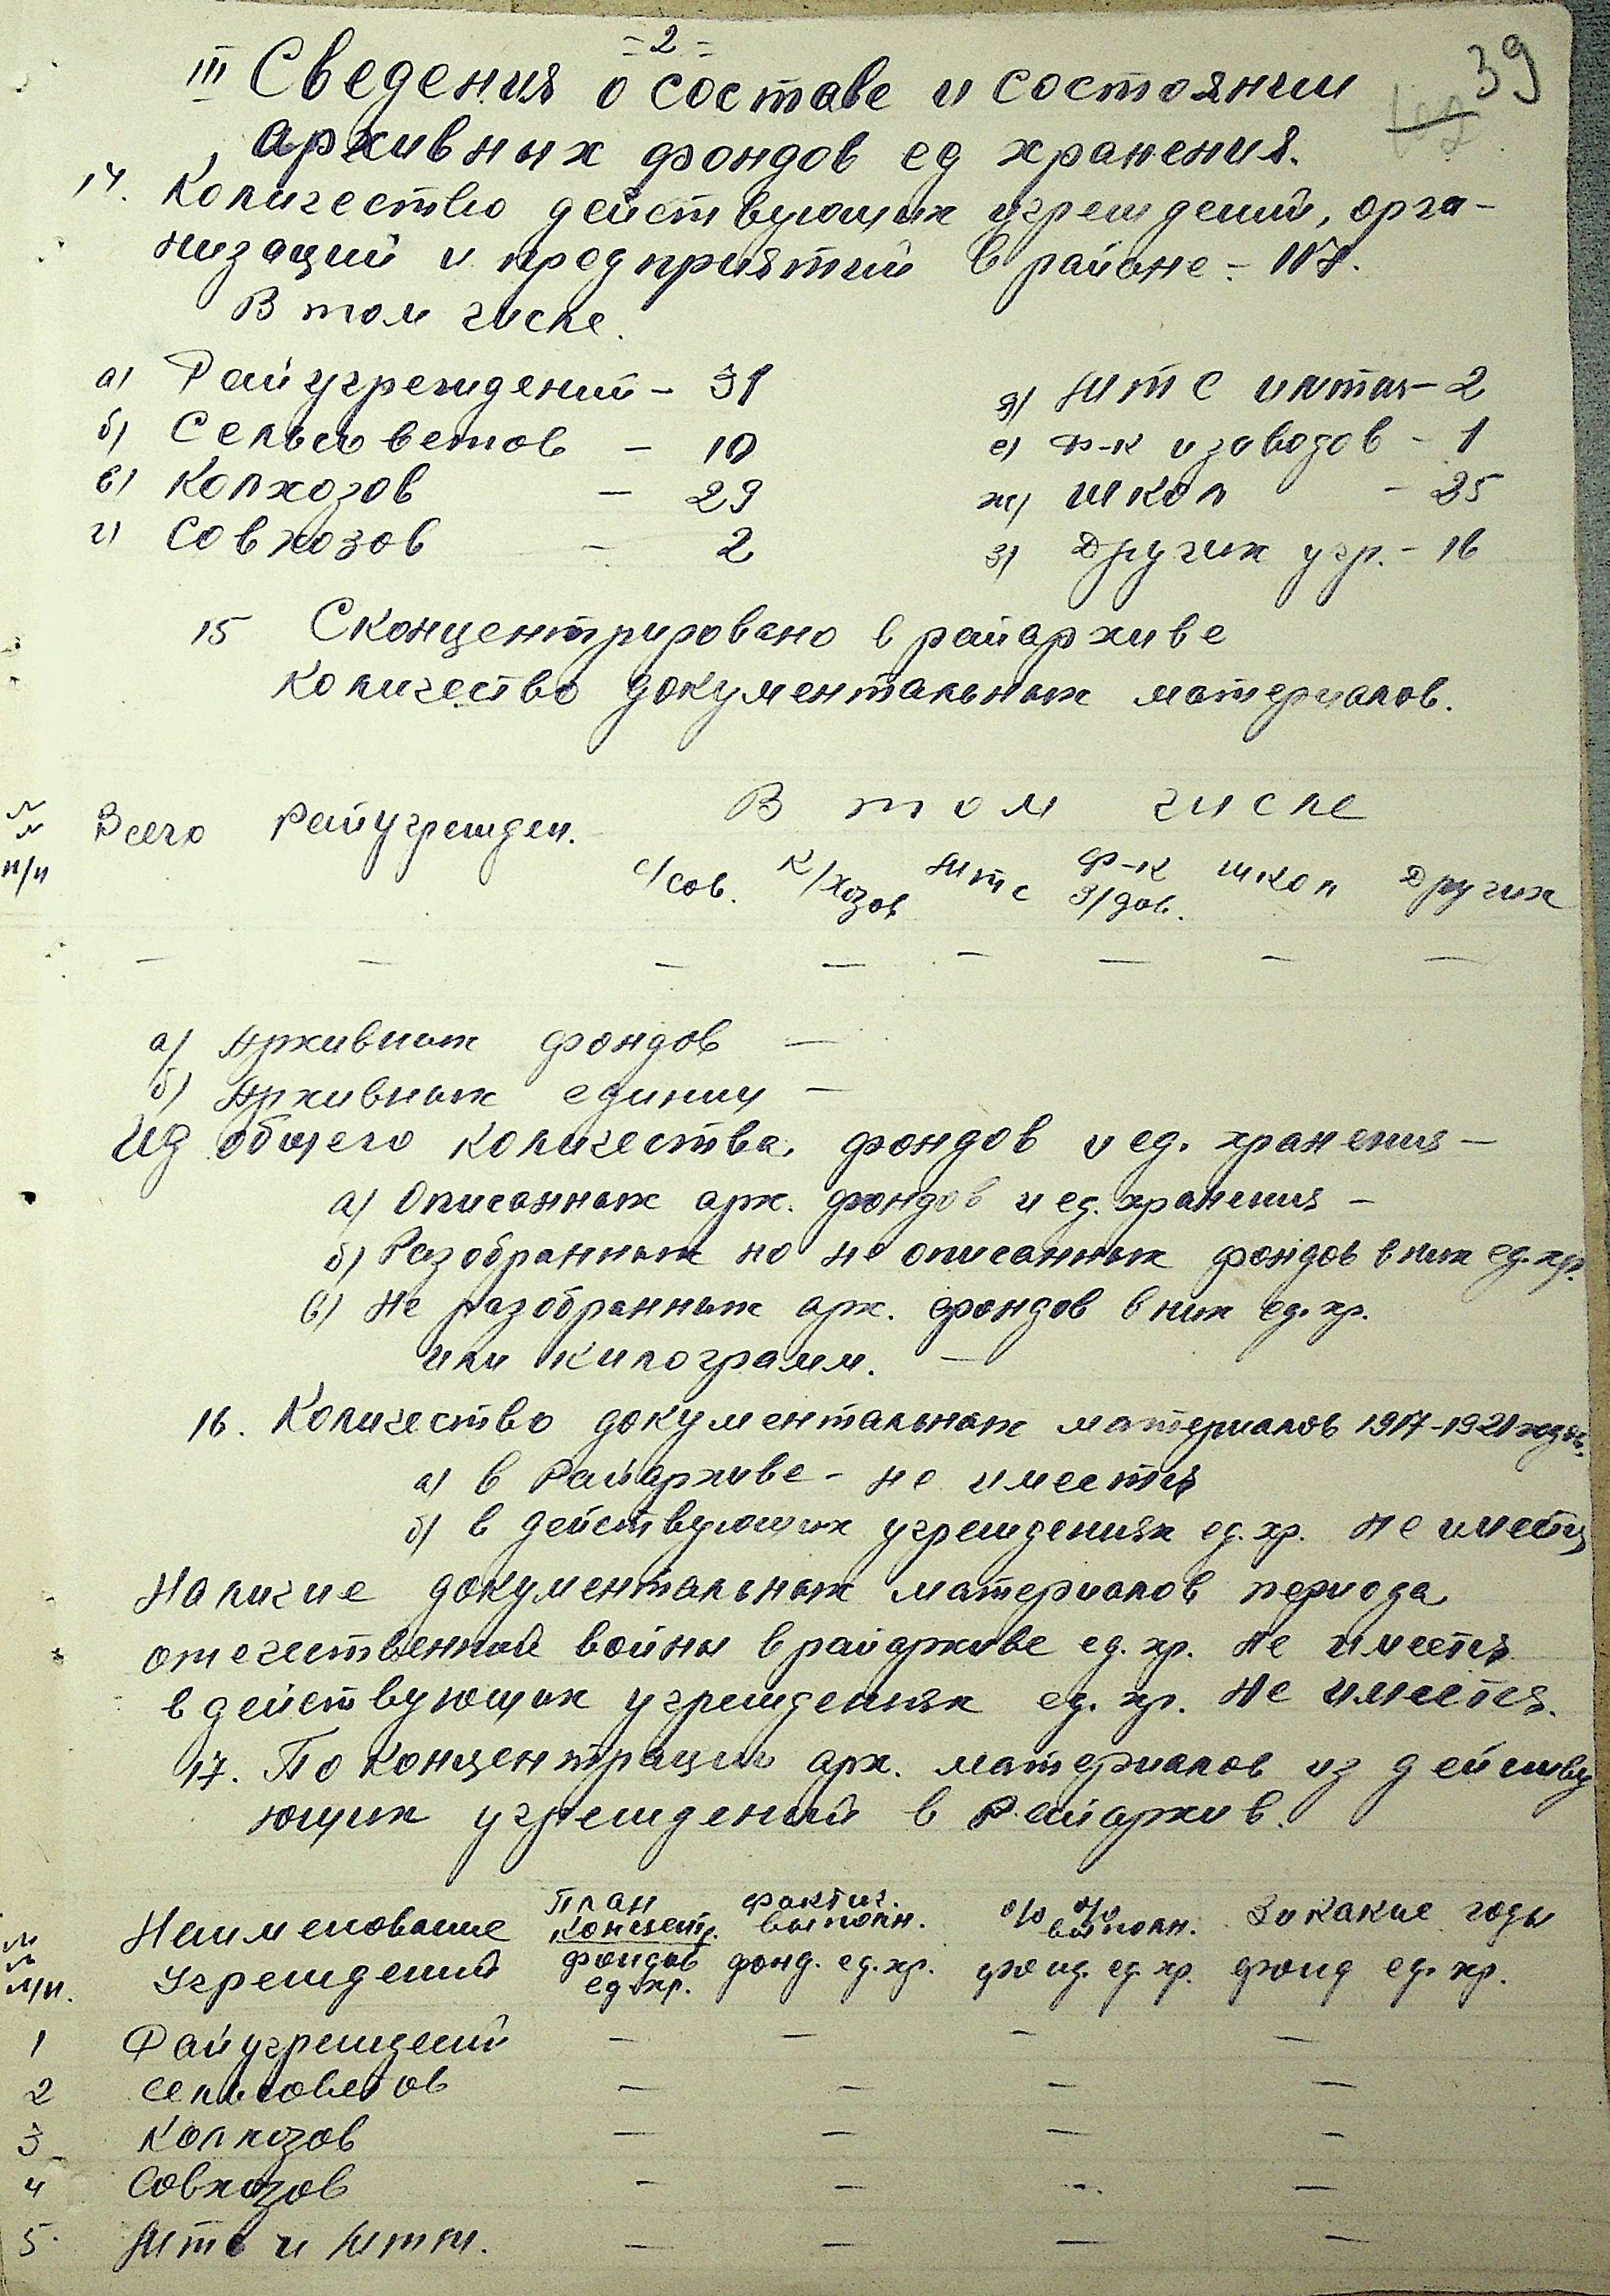 - 2 -
39
III Сведения о составе и состоянии
архивных фондов ед хранения.
14. Количество действующих учреждений, орга-
низаций и предприятий в районе -
В том числе.
а) Райучреждений - 31
б) Сельсоветов - 10
в) Колхозов - 29
г) Совхозов - 2
д) МТС и - 2
е) Ф-к и заводов - 1
ж) Школ - 25
з) Других учр. - 16
15 Сконцентрировано в райархиве
количество документальных материалов.
№ № п/п Всего Райучрежден. В том числе
с/сов. к/хозов МТС Ф-к з/дов. школ Других
— — — — — — — —
а) Архивных фондов —
б) Архивных единиц —
Из общего количества фондов и ед. хранения —
а) Описанных арх. фондов и ед. хранения —
б) Разобранных но не описанных фондов в них ед. хр.
в) Не разобранных арх. фондов в них ед. хр.
или килограмм. —
16. Количество документальных материалов 1917-1921 годы.
а) в Райархиве - не имеется
б) в действующих учреждениях ед. хр. не имеется
Наличие документальных материалов периода
отечественной войны в райархиве ед. хр. не имеется
в действующих учреждениях ед. хр. не имеется.
17. По концентрации арх. материалов из действу
ющих учреждений в Райархив.
№ № п/п. Наименование учреждений План концентр. фондов ед. хр. фактич. выполн. фонд. ед. хр. % % выполн. фонд. ед. хр. За какие годы фонд ед. хр.
1 Райучреждений — — — —
2 сельсоветов — — — —
3 Колхозов — — — —
4 Совхозов — — — —
5 МТС и — — — —